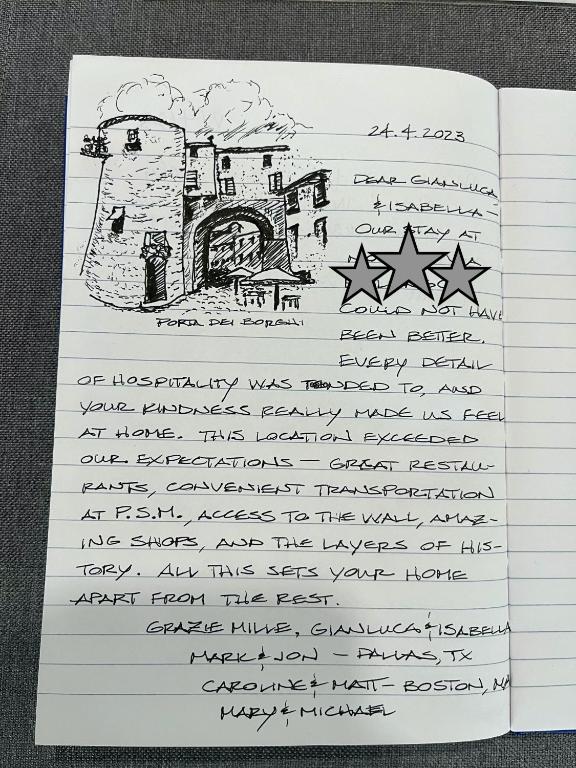 24.4.2023
DEAR GIANLUCA
& ISABELLA –
OUR STAY AT
COULD NOT HAVE
BEEN BETTER.
EVERY DETAIL
PORTA DEI BORGHI
OF HOSPITALITY WAS TENDED TO, AND
YOUR KINDNESS REALLY MADE US FEEL
AT HOME. THIS LOCATION EXCEEDED
OUR EXPECTATIONS – GREAT RESTAU-
RANTS, CONVENIENT TRANSPORTATION
AT P.S.M., ACCESS TO THE WALL, AMAZ-
ING SHOPS, AND THE LAYERS OF HIS-
TORY. ALL THIS SETS YOUR HOME
APART FROM THE REST.
GRAZIE MILLE, GIANLUCA & ISABELLA
MARK & JON – DALLAS, TX
CAROLINE & MATT – BOSTON, MA
MARY & MICHAEL